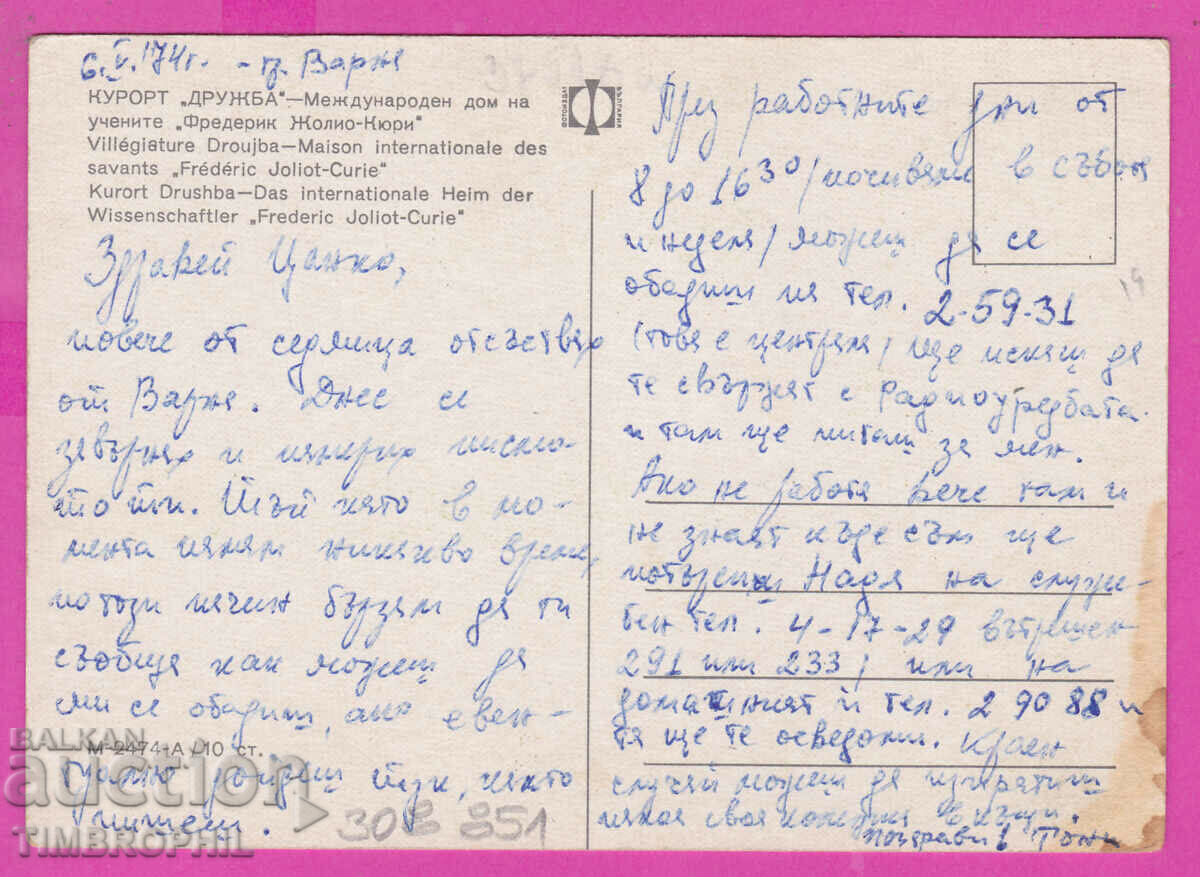 6.V.74г. - гр. Варна
КУРОРТ „ДРУЖБА"—Международен дом на
учените „Фредерик Жолио-Кюри"
Villégiature Droujba—Maison internationale des
savants „Frédéric Joliot-Curie"
Kurort Drushba—Das internationale Heim der
Wissenschaftler „Frederic Joliot-Curie"
Здравей Цанко,
повече от седмица отсъствах
от Варна. Днес се
завърнах и намерих писмо-
то ти. Тъй като в мо-
мента нямам никакво време,
по този начин бързам да ти
съобщя как можеш да
ми се обадиш, ако евен-
туално дойдеш тук, както
пишеш.
М-2474-А /10 ст.
ФОТОИЗДАТ БЪЛГАРИЯ
През работните дни от
8 до 16³⁰ /почивам в събота
и неделя/ можеш да се
обадиш на тел. 2-59-31
(това е централа/ ще искаш да
те свържат с Радиоуредбата
и там ще питаш за мен.
Ако не работя вече там и
не знаят къде съм ще
потърсиш Надя на служе-
бен тел. 4-17-29 вътрешен
291 или 233/ или на
домашният ѝ тел. 2 90 85 и
тя ще те осведоми. Краен
случай можеш да изпратиш
някоя своя в къщи.
Поздрави Тони
308 851
19
BALKAN
аукцион
TIMBROPHIL